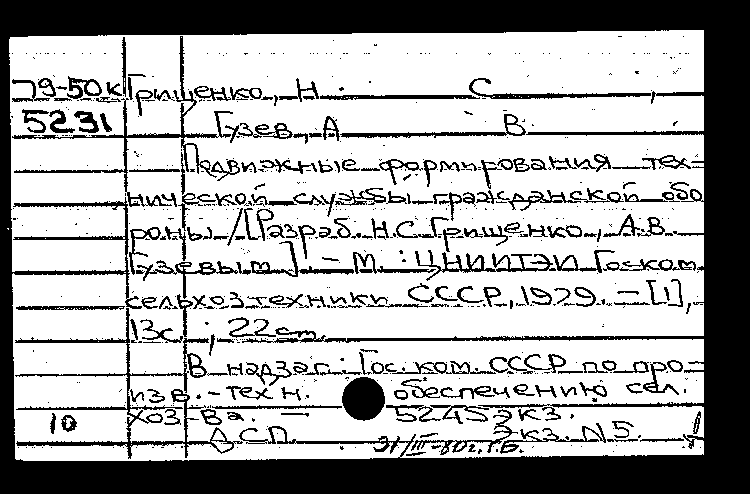 79-50к Грищенко, Н. С.
5231 Гузев, А. В.
Подвижные формирования тех-
нической службы гражданской обо
роны / [Разраб. Н.С. Грищенко, А.В.
Гузевым]. - М. : ЦНИИТЭИ Госком
сельхозтехники СССР, 1979. - [1],
13с. ; 22 см.
В надзаг.: Гос. ком. СССР по про-
изв.-техн. обеспечению сел.
10 хоз-ва. - 5245 экз.
ДСП. Экз. N5.
31/III-80г. Г.Б.